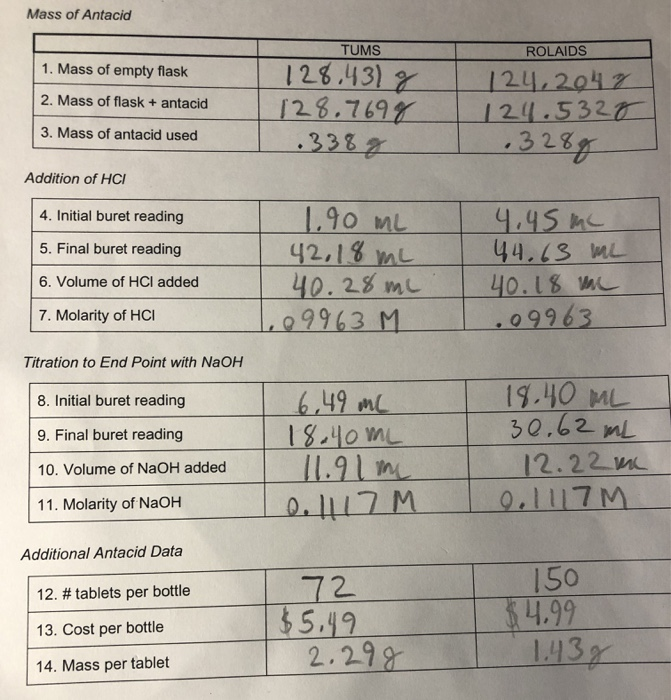 Mass of Antacid
TUMS ROLAIDS
1. Mass of empty flask 128.431 g 124.204 g
2. Mass of flask + antacid 128.769 g 124.532 g
3. Mass of antacid used .338 g .328 g
Addition of HCl
4. Initial buret reading 1.90 mL 4.45 mL
5. Final buret reading 42.18 mL 44.63 mL
6. Volume of HCl added 40.28 mL 40.18 mL
7. Molarity of HCl .09963 M .09963
Titration to End Point with NaOH
8. Initial buret reading 6.49 mL 18.40 mL
9. Final buret reading 18.40 mL 30.62 mL
10. Volume of NaOH added 11.91 mL 12.22 mL
11. Molarity of NaOH 0.1117 M 0.1117 M
Additional Antacid Data
12. # tablets per bottle 72 150
13. Cost per bottle $5.49 $4.99
14. Mass per tablet 2.29 g 1.43 g